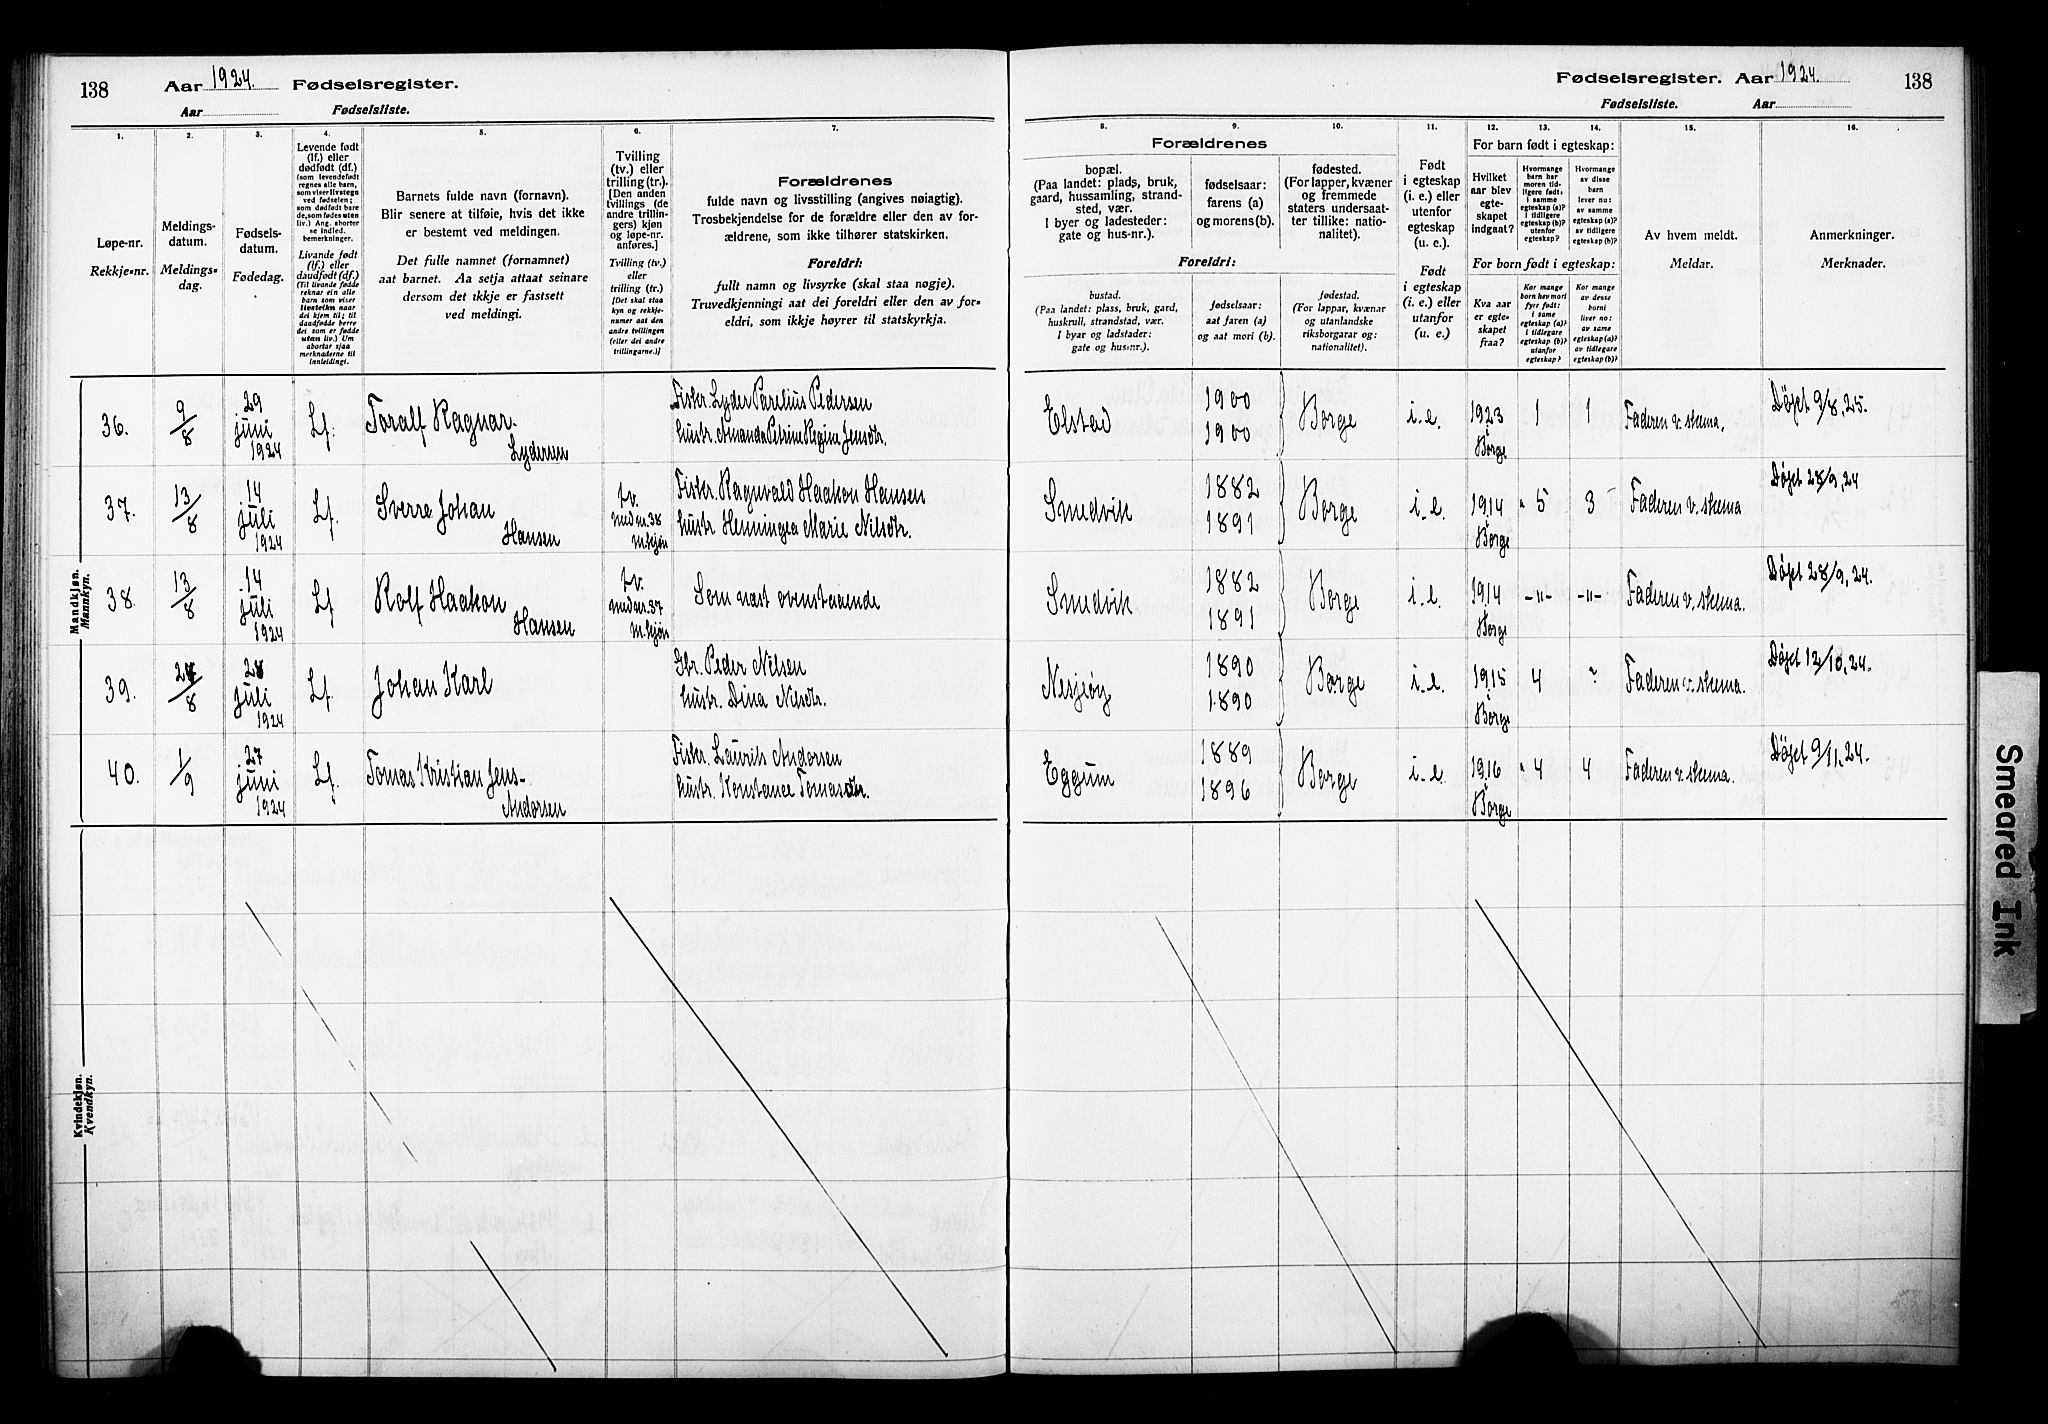 138
Aar 1924. Fødselsregister.
Aar Fødselsliste.
1.
Løpe-nr.
Rekkje-nr.
2.
Meldings-
datum.
Meldings-
dag.
3.
Fødsels-
datum.
Fødedag.
4.
Levende født
(lf.) eller
dødfødt (df.)
(som levendefødt
regnes alle barn,
som viser livstegn
ved fødselen;
som dødfødt bare
de, som fødes uten
liv.) Ang. aborter
se indled.
bemerkninger.
Livande født
(lf.) eller
daudfødt (df.)
(Til livande fødde
reknar ein alle
barn som viser
livsteikn naar
dei kjem til; til
daudfødde berre
dei som er fødde
utan liv.) Um
abortar sjaa
merknaderne til
innleidingi.
5.
Barnets fulde navn (fornavn).
Blir senere at tilføie, hvis det ikke
er bestemt ved meldingen.
Det fulle namnet (fornamnet)
aat barnet. Aa setja attaat seinare
dersom det ikkje er fastsett
ved meldingi.
6.
Tvilling
(tv.) eller
trilling (tr.).
[Den anden
tvillings (de
andre trillin-
gers) kjøn
og løpe-nr.
anføres.]
Tvilling (tv.)
eller
trilling (tr.)
[Det skal staa
kyn og rekkje-
numer aat den
andre tvillingen
(eller dei andre
trillingarne.)]
7.
Forældrenes
fulde navn og livsstilling (angives nøiagtig).
Trosbekjendelse for de forældre eller den av for-
ældrene, som ikke tilhører statskirken.
Foreldri:
fullt namn og livsyrke (skal staa nøgje).
Truvedkjenningi aat dei foreldri eller den av for-
eldri, som ikkje høyrer til statskyrkja.
Mandkjøn.
Mannkyn.
36. 9/8 29 juni 1924 Lf. Toralf Ragnar Lydersen
Fisker. Lyder Parelius Pedersen
hustr. Amanda Petrine Regine Jensdtr.
37. 13/8 14 juli 1924 Lf. Sverre Johan Hansen tv. med nr. 38 m.kjøn
Fisker. Ragnvald Haakon Hansen
hustr. Henningea Marie Nilsdtr.
38. 13/8 14 juli 1924 Lf Rolf Haakon Hansen tv. med nr. 37 m.kjøn
Som næst ovenstaaende
39. /8 juli 1924 Lf. Johan Karl
Gbr. Peder Nilsen
hustr. Dina Nilsdtr.
40. 1/9 27 juni 1924 Lf. Tomas Kristian Jens- Andorsen
Fisker. Laurits Andorsen
hustr. Konstance Tomasdtr.
Kvindekjøn.
Kvendkyn.
Fødselsregister. Aar 1924.
138
Fødselsliste. Aar
8.
Forældrenes
bopæl.
(Paa landet: plads, bruk,
gaard, hussamling, strand-
sted, vær.
I byer og ladesteder:
gate og hus-nr.).
Foreldri:
bustad.
(Paa landet: plass, bruk, gard,
huskrull, strandstad, vær.
I byar og ladstader:
gate og hus-nr.).
9.
fødselsaar:
farens (a)
og morens (b).
fødselsaar:
aat faren (a)
og aat mori (b).
10.
fødested.
(For lapper, kvæner
og fremmede
staters undersaat-
ter tillike: natio-
nalitet).
fødestad.
(For lappar, kvænar
og utanlandske
riksborgarar og:
nationalitet).
11.
Født
i egteskap
(i. e.) eller
utenfor
egteskap
(u. e.).
Født
i egteskap
(i. e.) eller
utanfor
(u. e.)
12.
For barn født i egteskap:
Hvilket
aar blev
egte-
skapet
indgaat?
For born født i egteskap:
Kva aar
er egte-
skapet
fraa?
13.
Hvormange
barn har
moren tid-
ligere født:
i samme
egteskap (a)?
i tidligere
egteskap (b)?
utenfor
egteskap?
Kor mange
born hev mori
fyrr født:
i same
egteskap (a)?
i tidlegare
egteskap (b)?
utanfor
egteskap?
14.
Hvormange
av disse
barn
lever nu:
av samme
egteskap (a)?
av tidligere
egteskap (b)?
Kor mange
av desse
borni
liver no:
av same
egteskap (a)?
av tidlegare
egteskap (b)?
15.
Av hvem meldt.
Meldar.
16.
Anmerkninger.
Merknader.
Elstad 1900 1900 Borge i.e. 1923 i Borge 1 1 Faderen v. skema. Døpt 9/8, 25.
Smedvik 1882 1891 Borge i.e. 1914 i Borge 5 3 Faderen v. skema Døpt 28/9, 24
Smedvik 1882 1891 Borge i.e. 1914 i Borge -"- -"- Faderen v. skema. Døpt 28/9, 24.
1890 1890 Borge i.e. 1915 i Borge 4 Faderen v. skema. Døpt 12/10, 24.
Eggum 1889 1896 Borge i.e. 1916 i Borge 4 4 Faderen v. skema. Døpt 9/11, 24.
Smeared Ink